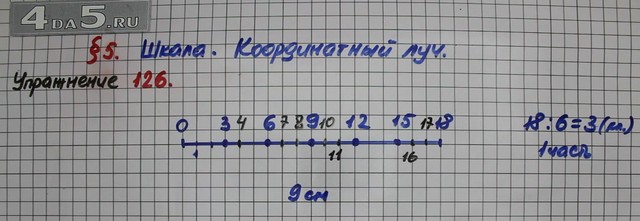 4DA5.RU
§5. Шкала. Координатный луч.
Упражнение 126.
0 3 4 6 7 8 9 10 12 15 17 18
1 11 16
18:6=3(кл.)
1 часть
9 см